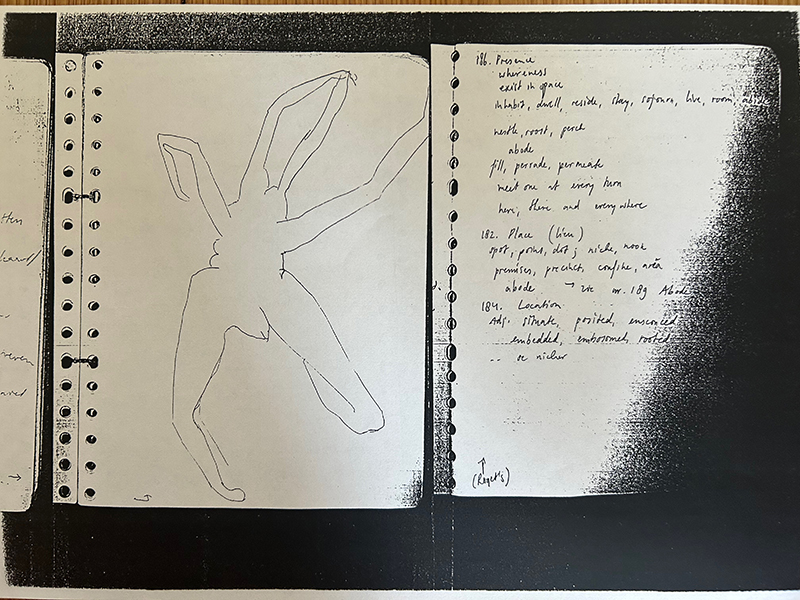 tten
186. Presence
whereness
exist in space
inhabit, dwell, reside, stay, sojourn, live, room, abide
nestle, roost, perch
abode
fill, pervade, permeate
meet one at every turn
here, there and everywhere
182. Place (lieu)
spot, point, dot; niche, nook
premises, precinct, confine, area
abode → nr. 189 Abode
184. Location
Adj. situate, posited, ensconced
embedded, embosomed, rooted
↑
(Roget's)